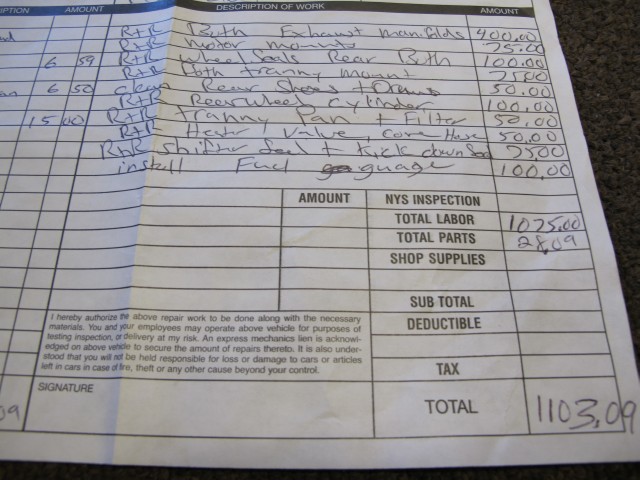 IPTION AMOUNT DESCRIPTION OF WORK AMOUNT
R+R Both Exhaust manifolds 400.00
R+R motor mounts 75.00
6 59 R+R wheel Seals Rear Both 100.00
R+R Both tranny mount 75.00
6 50 clean Rear Shoes + Drums 50.00
R+R Rear wheel cylinder 100.00
15 00 R+R tranny Pan + Filter 50.00
R+R Heater Valve, Core Hose 50.00
R+R Shifter Seal + Kick down Seal 75.00
install Fuel guage 100.00
AMOUNT NYS INSPECTION
TOTAL LABOR 1075.00
TOTAL PARTS 28.09
SHOP SUPPLIES
SUB TOTAL
DEDUCTIBLE
I hereby authorize the above repair work to be done along with the necessary
materials. You and your employees may operate above vehicle for purposes of
testing inspection, or delivery at my risk. An express mechanics lien is acknowl-
edged on above vehicle to secure the amount of repairs thereto. It is also under-
stood that you will not be held responsible for loss or damage to cars or articles
left in cars in case of fire, theft or any other cause beyond your control.
TAX
SIGNATURE
09 TOTAL 1103.09